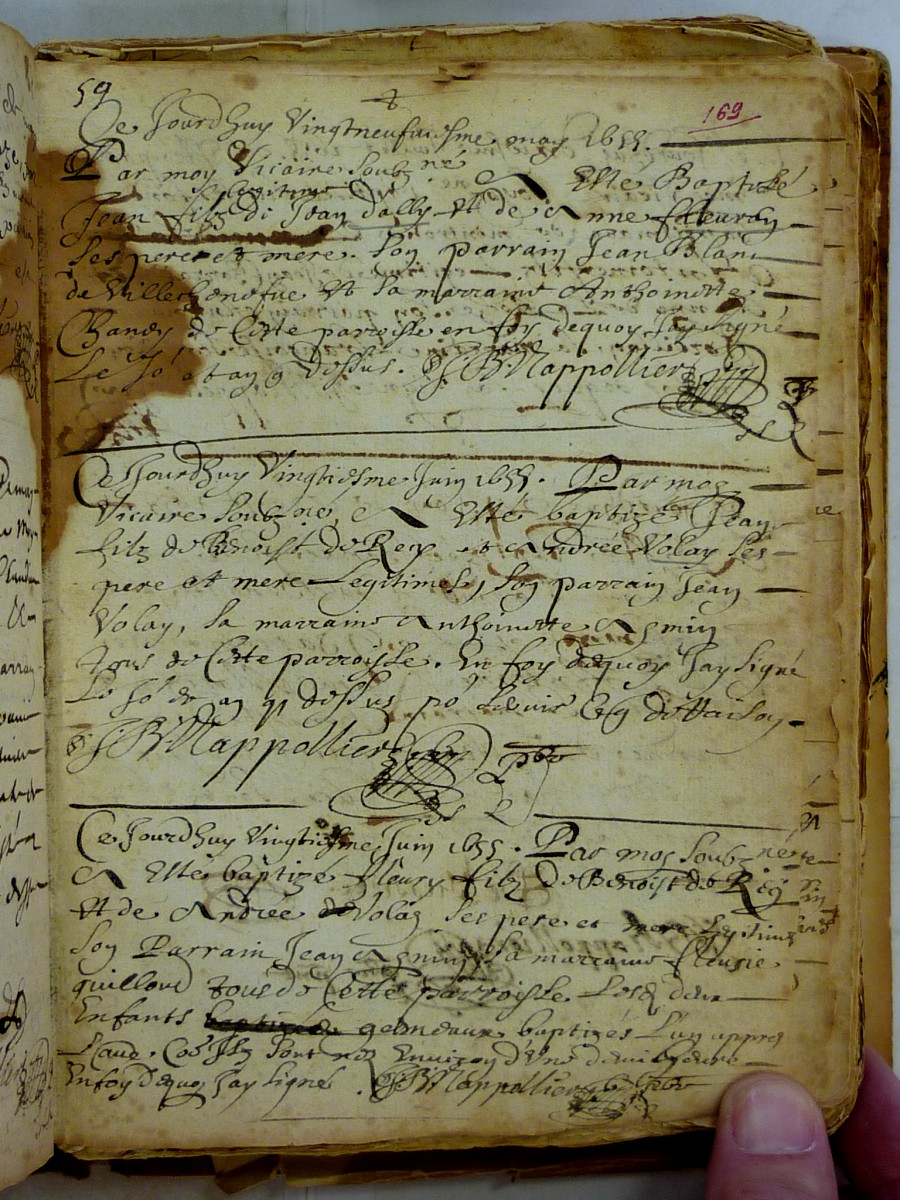 59
169
Ce Jourdhuy Vingtneufuiesme may 1655.
Par moy Vicaire Soubzne a Esté Baptizé
legitime
Jean filz de Jean dally Et de Anne ffleurdy
Ses pere et mere. Son parrain Jean Blanc
de Villechenefue Et Sa marraine Anthoinette
Chaney de Cette parroisse en foy dequoy Jay Signé
Le Jor et an q dessus. JB Mappollier
Ce Jourdhuy Vingtiesme Juin 1655. Par moy
Vicaire Soubzné a Esté baptizé Jean
filz de Benoist de Rey et Andrée Volay Ses
pere et mere Legitimes, Son parrain Jean
Volay, Sa marraine Anthoinette
Tous de Cette parroisse. En foy dequoy Jay Signé
Le Jor et an q dessus
JB Mappollier pbre
Ce Jourdhuy Vingtiesme Juin 1655. Par moy Soubzné
a Esté baptizé fleury filz de Benoist de Rey
Et de Andrée Volay Ses pere et mere Legitimes
Son Parrain Jean Sa marraine
quilloud tous de Cette parroisse. Lesd deux
Enfants gemeaux baptizés L'un appres
L'autre. Enuiron d'Une demi heure
En foy dequoy Jay Signé. JB Mappollier pbre